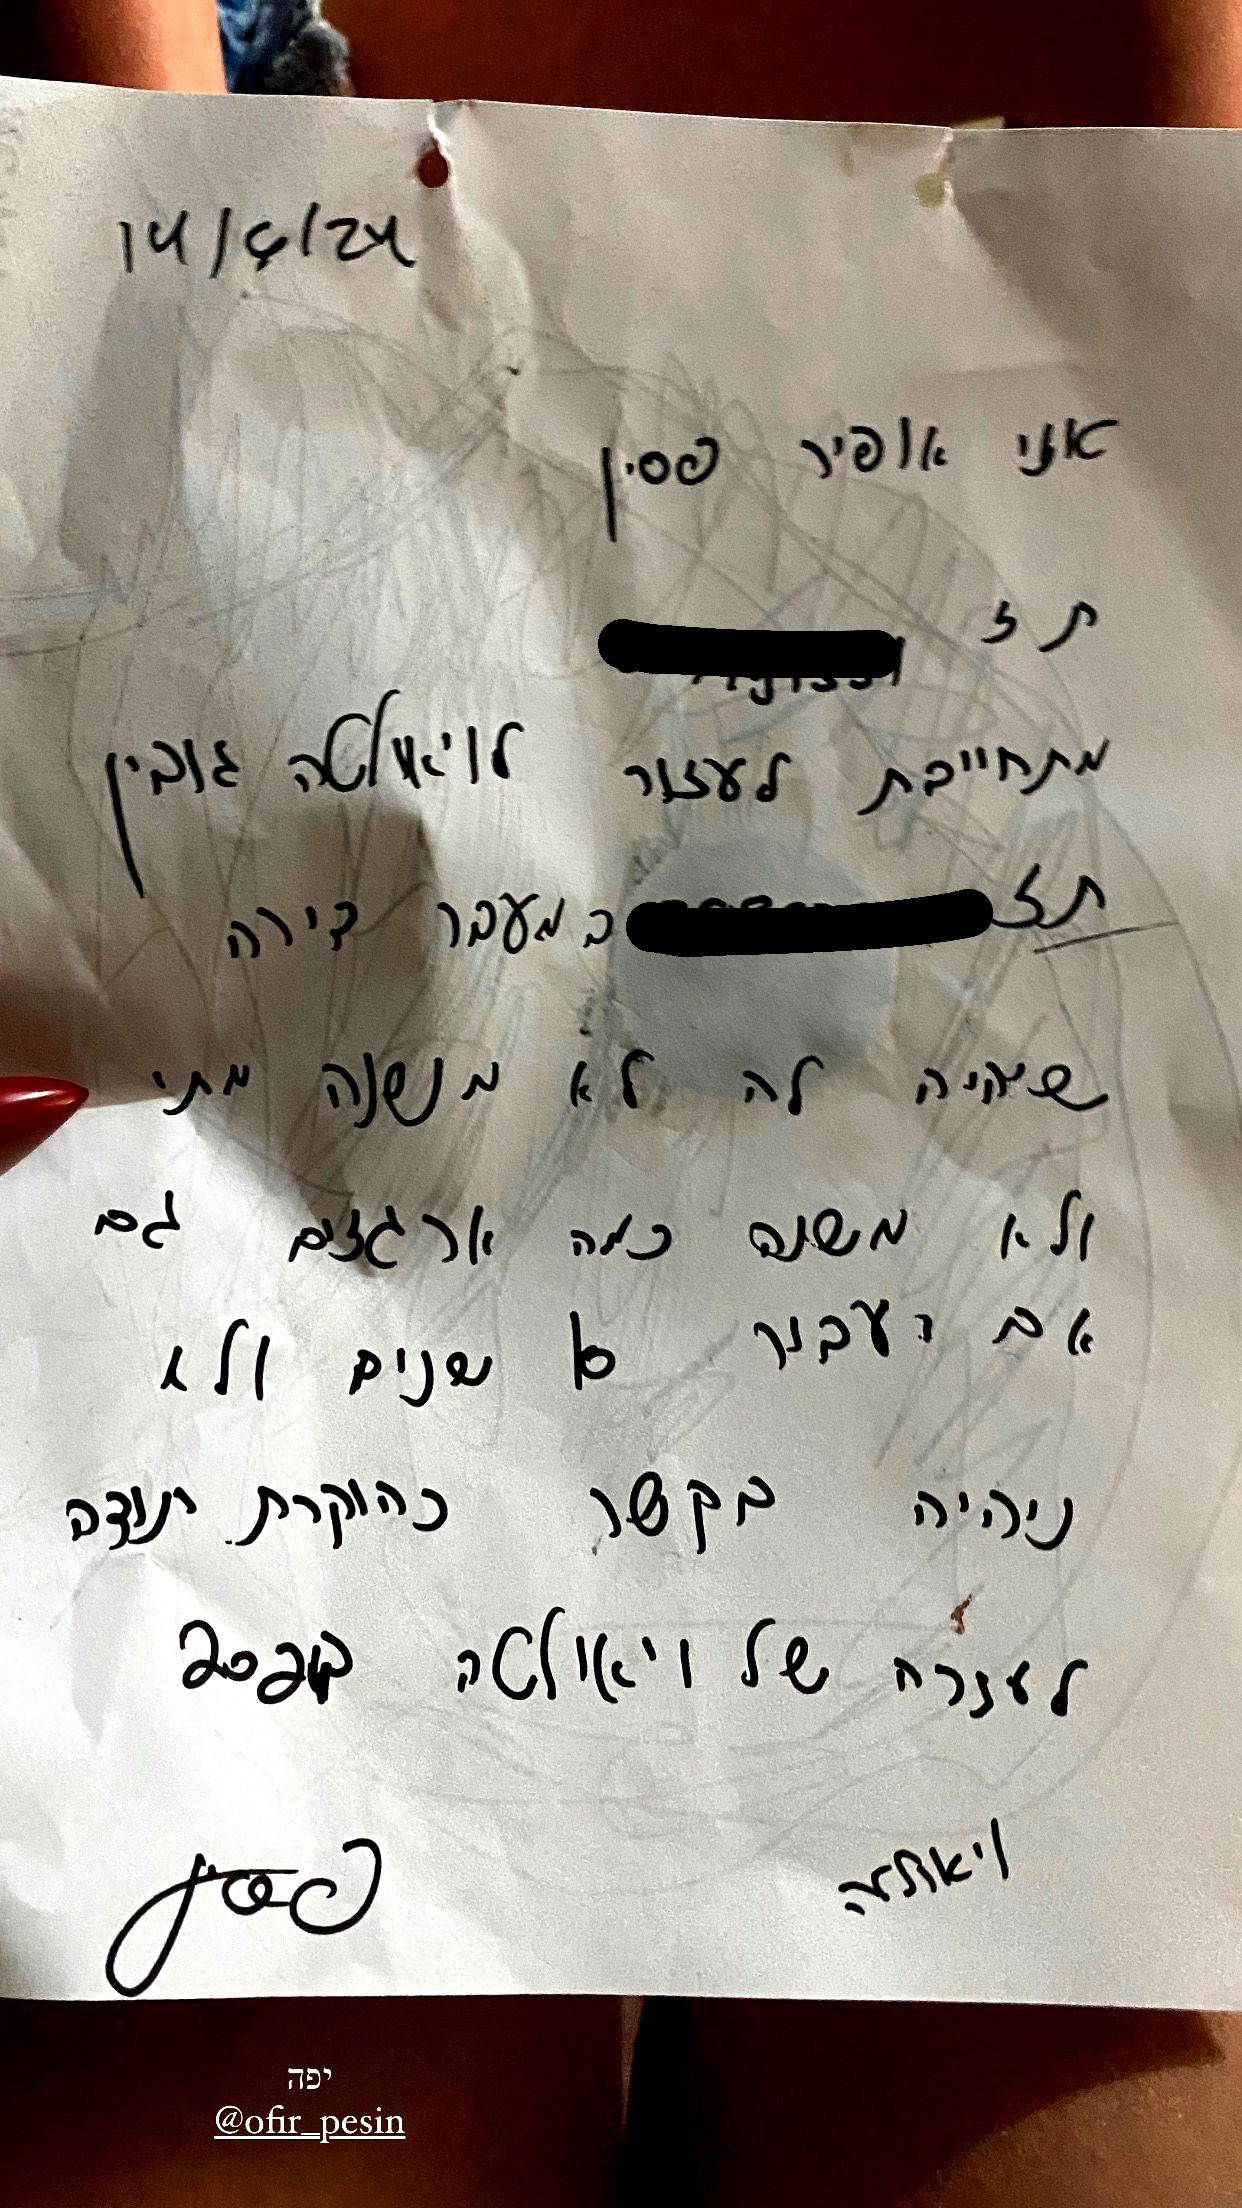 14/6/24
אני אופיר פסין
ת ז
מתחייבת לעזור לויאולטה גובין
תז במעבר דירה
שיהיה לה לא מנשנה מתי
ולא משנה כמה ארגזים גם
אם יעבור 10 שנים ולא
ניהיה בקשר כהוקרת תודה
לעזרה של ויאולטה ב2024
ויאולטה
פסין
יפה
@ofir_pesin